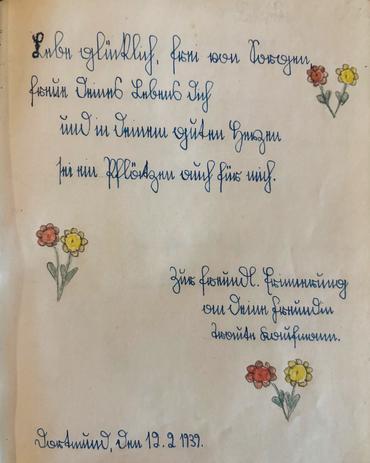 Lebe glücklich, frei von Sorgen,
freue deines Lebens dich
und in deinem guten Herzen
sei ein Plätzen auch für mich.
Zur freundl. Erinnerung
an deine Freundin
Traute Kaufmann.
Dortmund, den 12.2.1939.